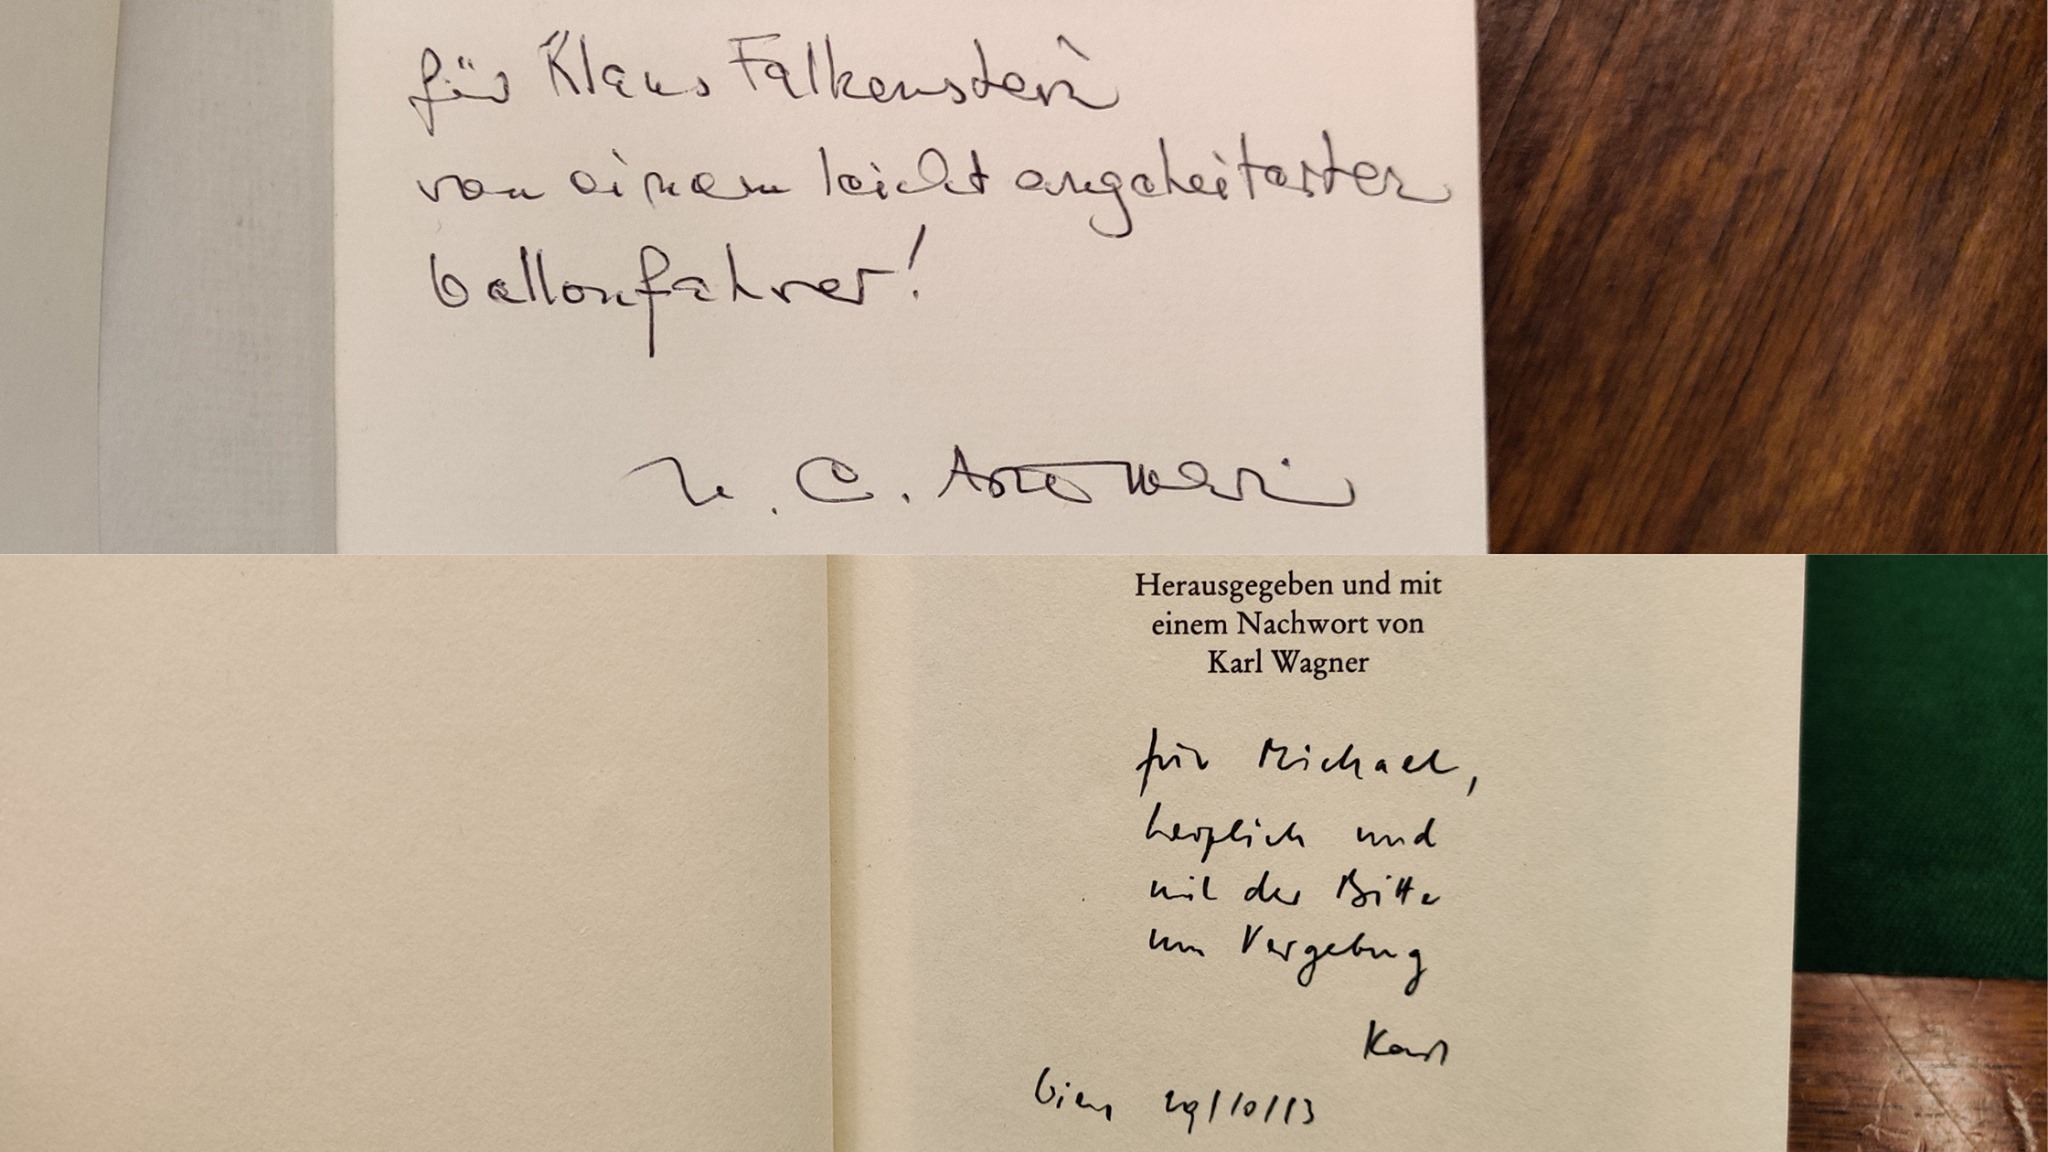 für Klaus Falkenstein
von einem leicht angeheiterten
ballonfahrer!
H. C. Artmann
Herausgegeben und mit
einem Nachwort von
Karl Wagner
für Michael,
herzlich und
mit der Bitte
um Vergebung
Karl
Wien 29/10/13